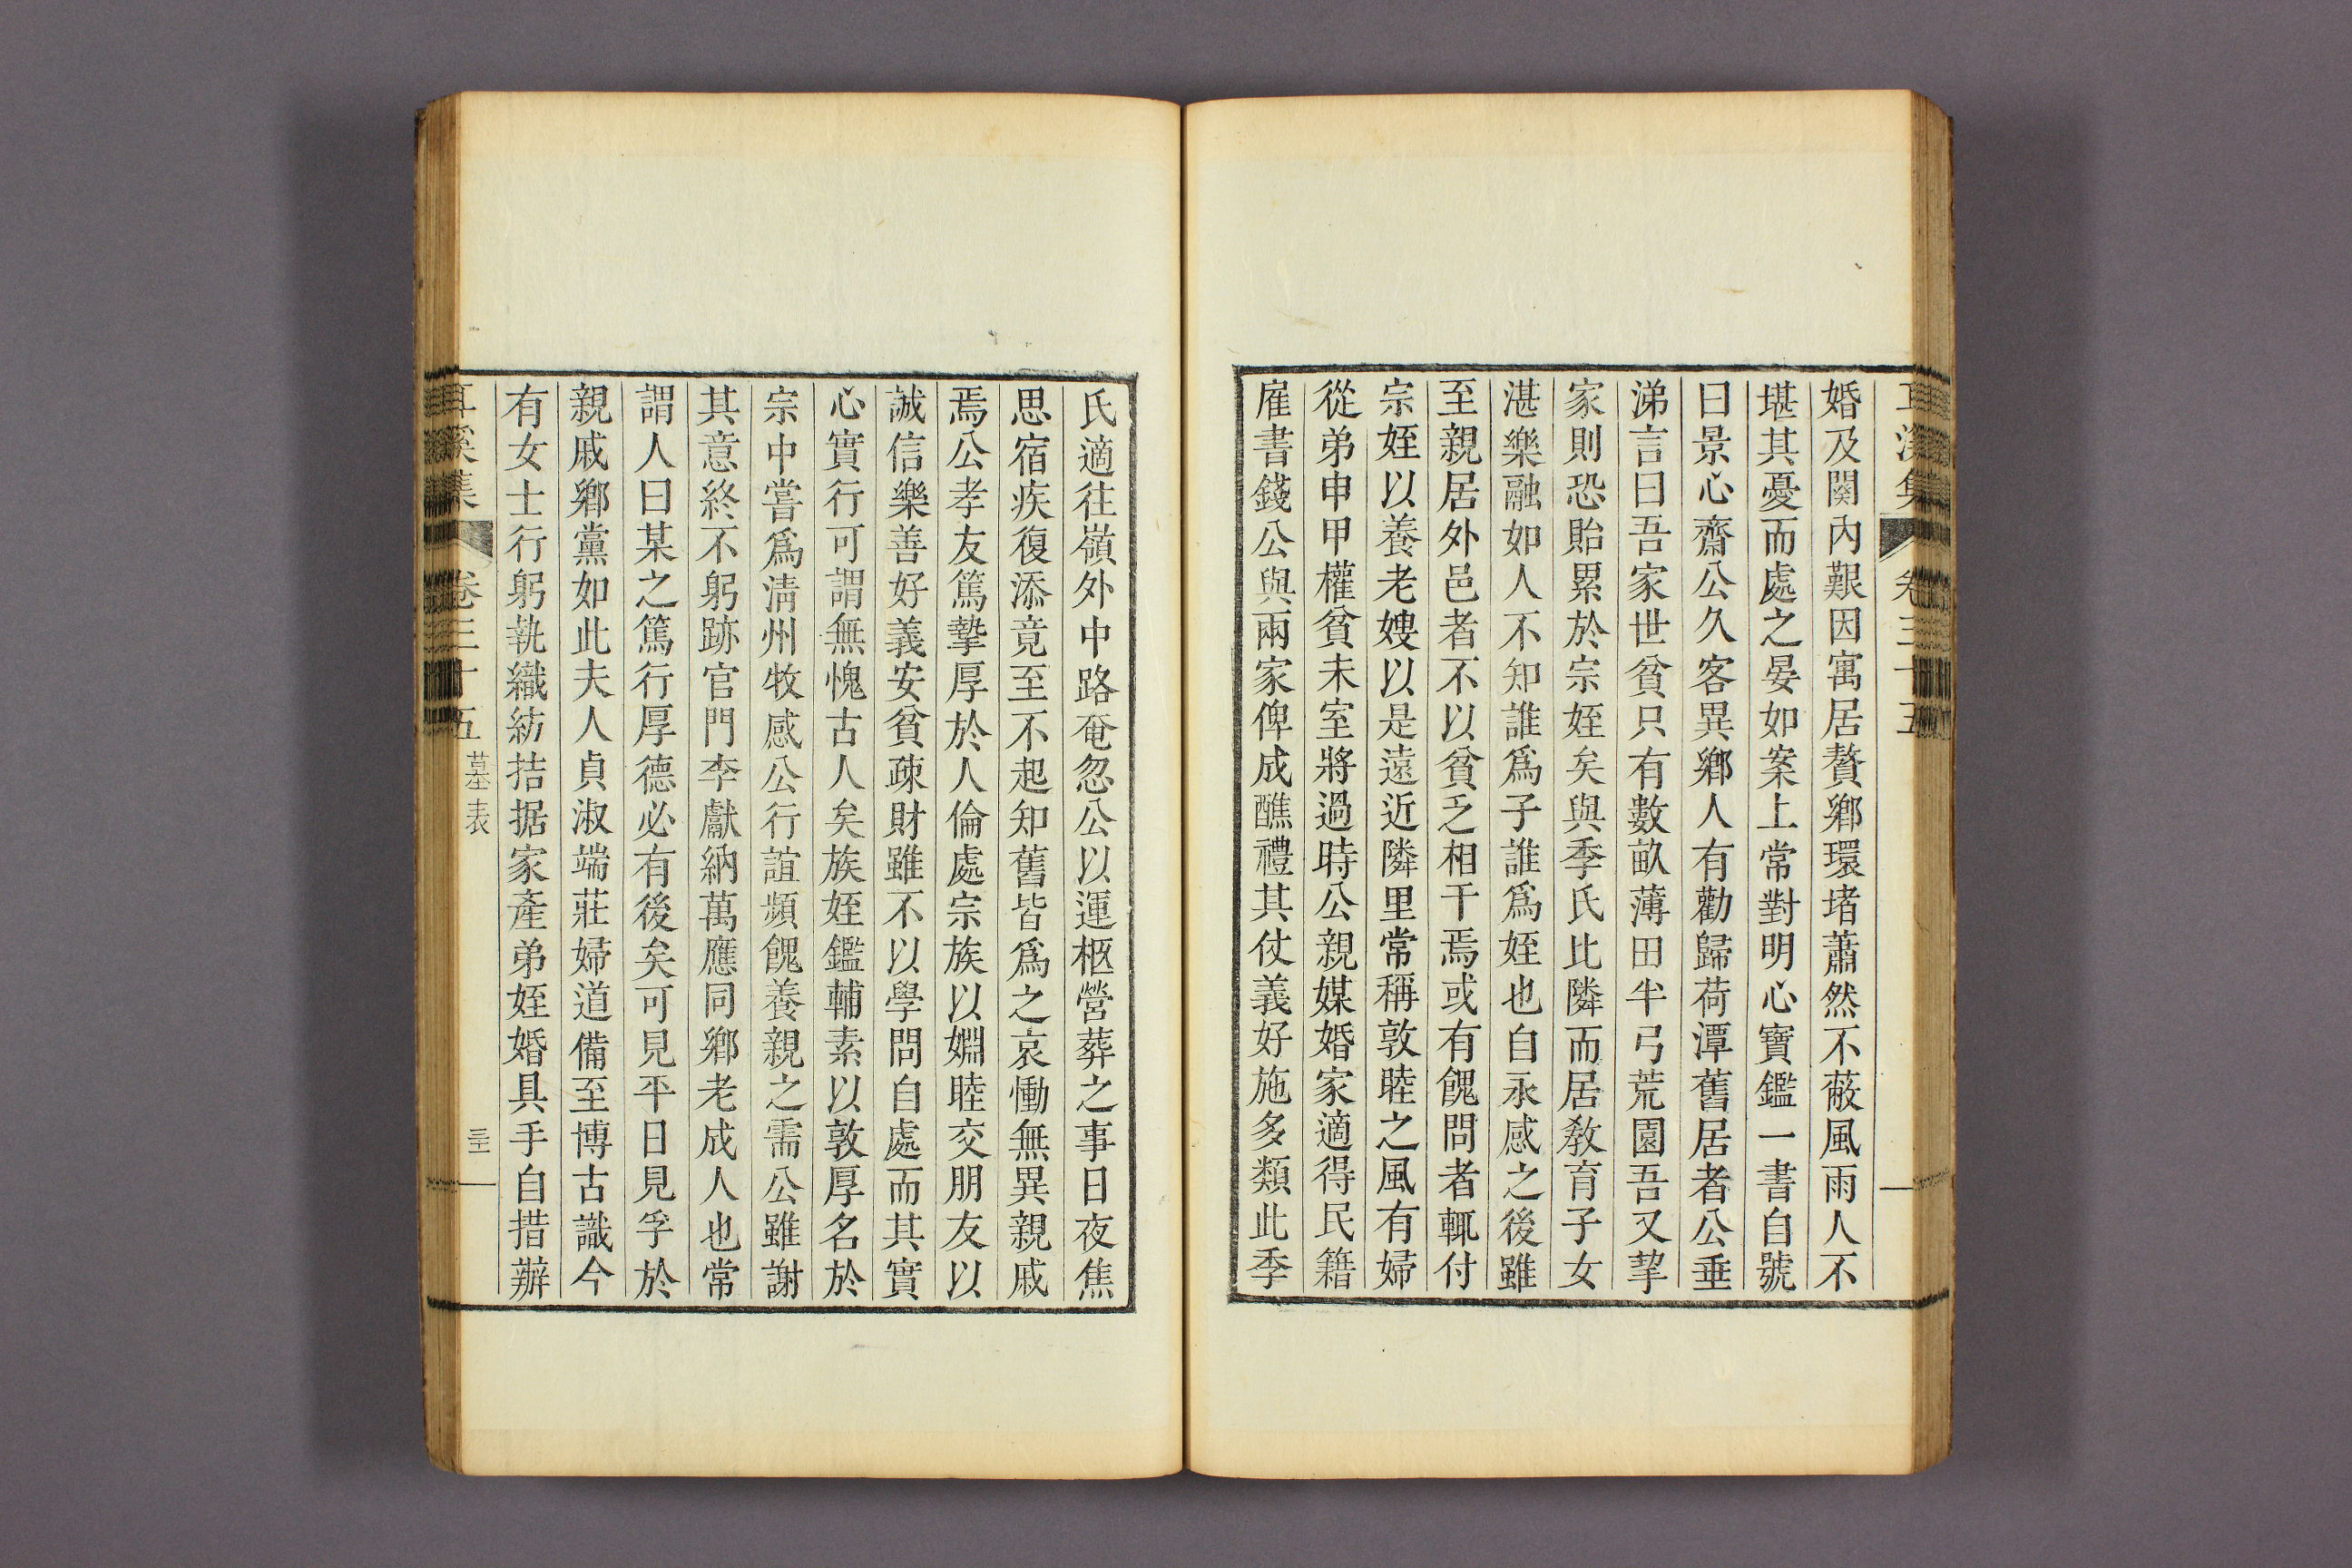 婚及関內艱因寓居贅鄉環堵蕭然不蔽風雨人不
堪其憂而處之晏如案上常對明心寶鑑一書自號
曰景心齋公久客異鄉人有勸歸荷潭舊居者公垂
涕言曰吾家世貧只有數畝薄田半弓荒園吾又挈
家則恐貽累於宗姪矣與季氏比隣而居教育子女
湛樂融如人不知誰爲子誰爲姪也自永感之後雖
至親居外邑者不以貧乏相干焉或有餽問者輒付
宗姪以養老嫂以是遠近隣里常稱敦睦之風有婦
從弟申甲權貧未室將過時公親媒婚家適得民籍
雇書錢公與兩家俾成醮禮其仗義好施多類此季
氏適往嶺外中路奄忽公以運柩營葬之事日夜焦
思宿疾復添竟至不起知舊皆爲之哀慟無異親戚
焉公孝友篤摯厚於人倫處宗族以婣睦交朋友以
誠信樂善好義安貧疎財雖不以學問自處而其實
心實行可謂無愧古人矣族姪鑑輔素以敦厚名於
宗中嘗爲淸州牧感公行誼頻餽養親之需公雖謝
其意終不躬跡官門李獻納萬應同鄉老成人也常
謂人曰某之篤行厚德必有後矣可見平日見孚於
親戚鄉黨如此夫人貞淑端莊婦道備至博古識今
有女士行躬執織紡拮据家產弟姪婚具手自措辦
耳溪集 卷三十五 墓表